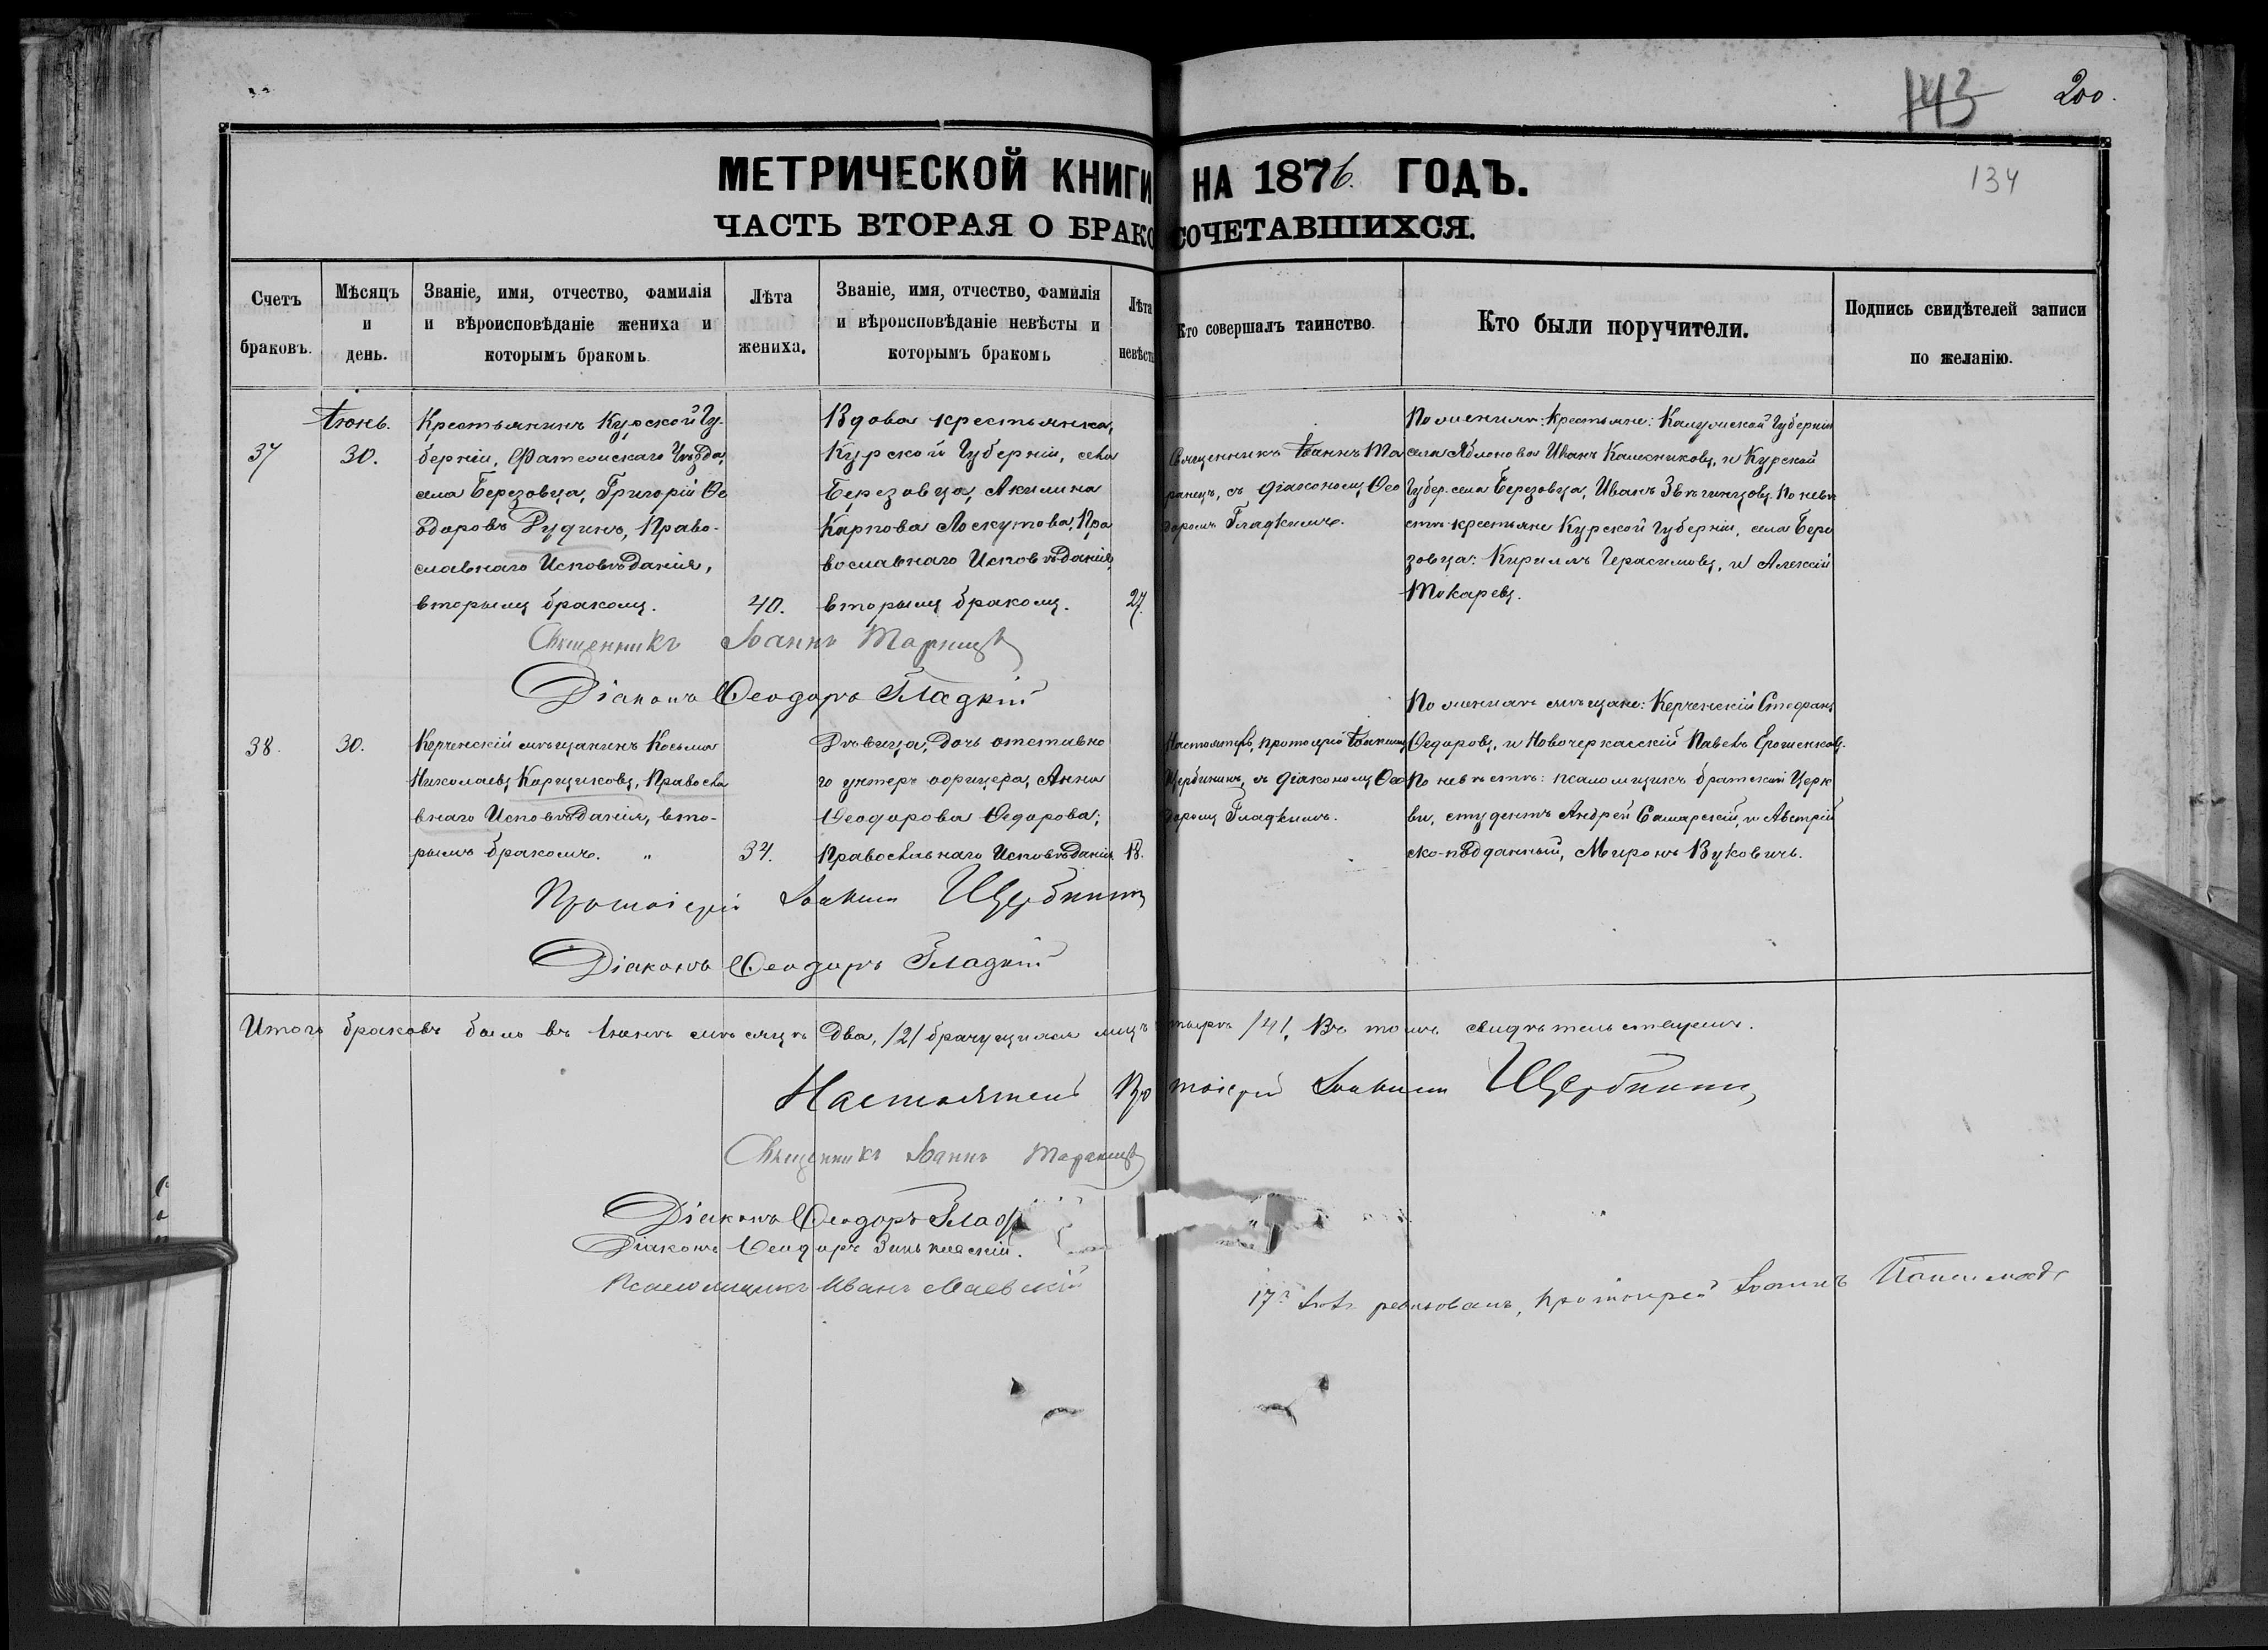 143 200.
МЕТРИЧЕСКОЙ КНИГИ НА 1876. ГОДЪ.
134
ЧАСТЬ ВТОРАЯ О БРАКОСОЧЕТАВШИХСЯ.
Счетъ
браковъ.
Мѣсяцъ
и
день.
Званіе, имя, отчество, фамилія
и вѣроисповѣданіе жениха и
которымъ бракомъ
Лѣта
жениха.
Званіе, имя, отчество, фамилія
и вѣроисповѣданіе невѣсты и
которымъ бракомъ
Лѣта
невѣсты
Кто совершалъ таинство.
Кто были поручители.
Подпись свидѣтелей записи
по желанію.
37
Іюнь.
30.
Крестьянинъ Курской Гу-
берніи, Фатежскаго Уѣзда,
села Березовца, Григорій Ѳе
одоровъ Рудинъ, Право-
славнаго Исповѣданія,
вторымъ бракомъ.
40.
Вдова крестьянка,
Курской Губерніи, села
Березовца, Акилина
Карпова Лоскутова, Пра
вославнаго Исповѣданія,
вторымъ бракомъ.
27.
Священникъ Іоаннъ Та
ранецъ, съ діакономъ Ѳео
доромъ Гладкимъ.
По женихѣ: Крестьяне: Калужской Губерніи
села Яблонова Иванъ Калесниковъ, и Курской
Губер. села Березовца, Иванъ Звягинцовъ. По невѣ
стѣ крестьяне Курской Губерніи, села Бере
зовца: Кириллъ Герасимовъ, и Алексій
Токаревъ.
Священникъ Іоаннъ Таранецъ
Діаконъ Ѳеодоръ Гладкій
38.
30.
Керченскій мѣщанинъ Косьма
Николаевъ Карциковъ, Правосла
внаго Исповѣданія, вто-
рымъ бракомъ. "
34.
Дѣвица, дочь отставно
го унтеръ офицера, Анна
Ѳеодорова Ѳедорова;
Православнаго Исповѣданія
18.
Настоятель, протоіерей Іоакимъ
Щербининъ, съ діакономъ Ѳео
доромъ Гладкимъ.
По женихѣ мѣщане: Керченскій Стефанъ
Ѳедоровъ, и Новочеркасскій Павелъ Ерошенковъ.
По невѣстѣ: псаломщикъ братской Церк
ви, студентъ Андрей Самарскій, и Австрій
ско-подданный, Миронъ Вуковичъ.
Протоіерей Іоакимъ Щербининъ
Діаконъ Ѳеодоръ Гладкій
Итого браковъ было въ Іюнѣ мѣсяцѣ два, /2/ брачущихся лицъ тыре /4/. Въ томъ свидѣтельствуемъ.
Настоятель Протоіерей Іоакимъ Щербининъ
Священникъ Іоаннъ Таранецъ
Діаконъ Ѳеодоръ Глад
Діаконъ Ѳеодоръ Зиньковскій.
Псаломщикъ Иванъ Саевскій
17 ревизовалъ, протоіерей Іоаннъ